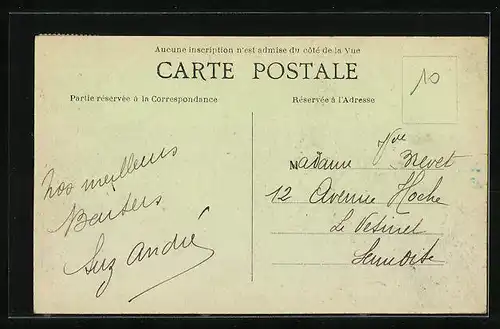 Aucune inscription n'est admise du côté de la Vue
CARTE POSTALE
Partie réservée à la Correspondance
Réservée à l'Adresse
10
nos meilleurs
Baisers
Suz André
Madame Vve Brevet
12 Avenue Hoche
Le Vésinet